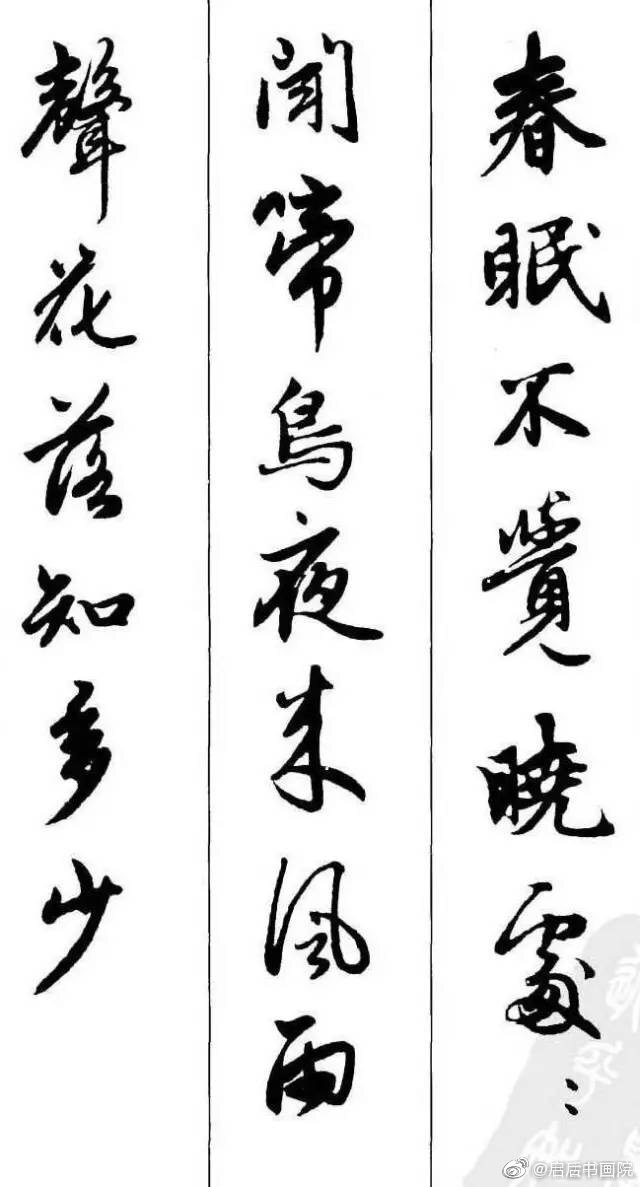 春眠不覺曉處:
聞啼鳥夜来風雨
聲花落知多少
@启后书画院